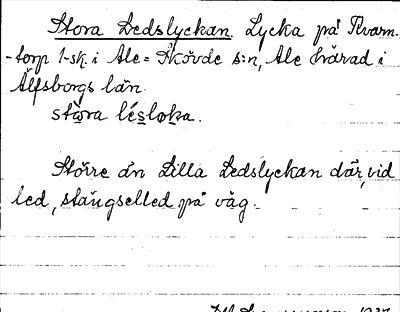 Stora Ledslyckan. Lycka på Kvarn-
-torp 1-sk. i Ale-Skövde s:n, Ale härad i
Älfsborgs län.
stώra lésloka.
Större än Lilla Ledslyckan där, vid
led, stängselled på väg.
1937